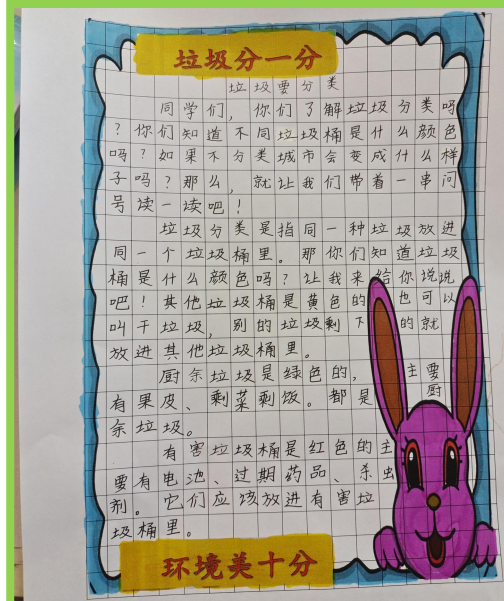 垃圾分一分
垃圾要分类
同学们，你们了解垃圾分类吗
？你们知道不同垃圾桶是什么颜色
吗？如果不分类城市会变成什么样
子吗？那么，就让我们带着一串问
号读一读吧！
垃圾分类是指同一种垃圾放进
同一个垃圾桶里。那你们知道垃圾
桶是什么颜色吗？让我来给你说说
吧！其他垃圾桶是黄色的 也可以
叫干垃圾，别的垃圾剩下的就
放进其他垃圾桶里。
厨余垃圾是绿色的，主要
有果皮、剩菜剩饭。都是厨
余垃圾。
有害垃圾桶是红色的主
要有电池、过期药品、杀虫
剂。它们应该放进有害垃
圾桶里。
环境美十分